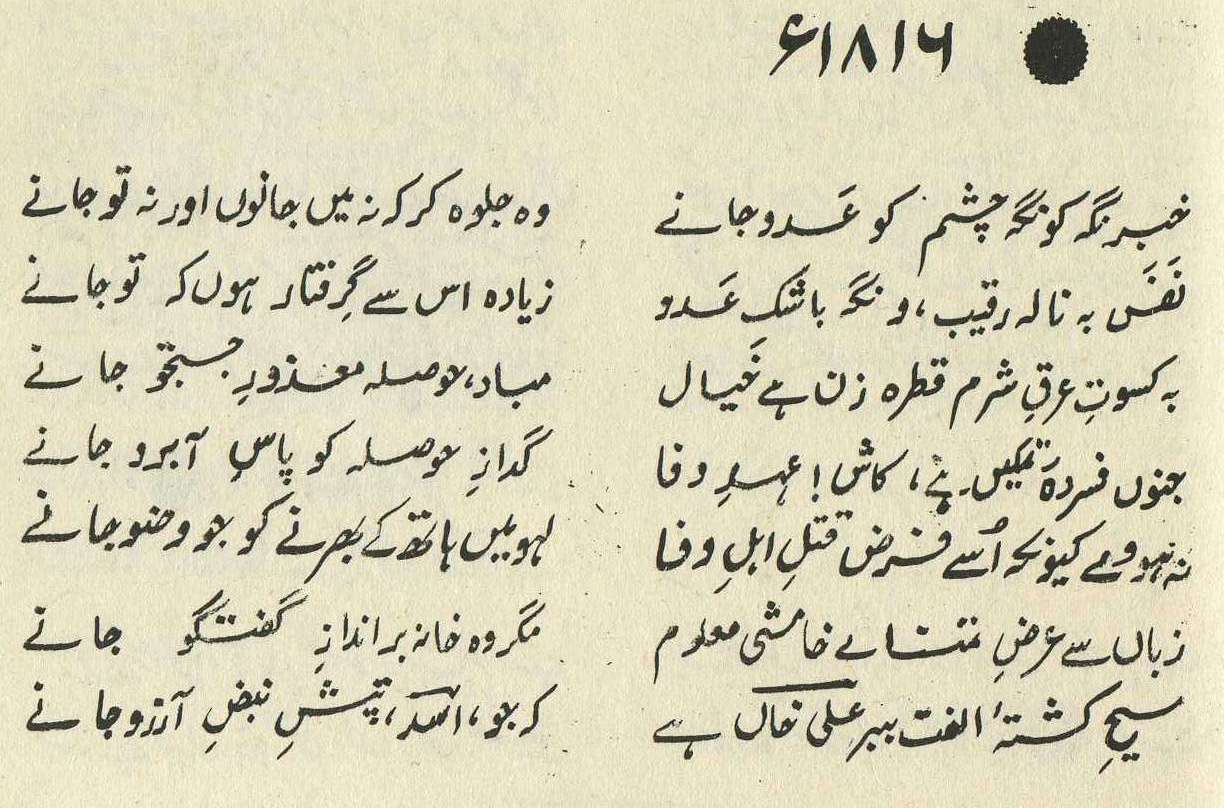 ۱۸۱۶ء
خبر نگہ کو نگہ چشم کو عَدو جانے
وہ جلوہ کر کہ نہ میں جانوں اور نہ تو جانے
نَفَس بہ نالہ رقیب، و نگہ باشک عَدو
زیادہ اس سے گِرفتار ہوں کہ تو جانے
بہ کسوتِ عرقِ شرم قطرہ زن ہے خَیال
مباد، حوصلہ معذورِ جستجو جانے
جنوں فسردہ تمکیں ہے، کاش! عہدِ وفا
گدازِ حوصلہ کو پاسِ آبرو جانے
نہ ہووے کیونکہ اُسے فرض قتلِ اہلِ وفا
لہو میں ہاتھ کے بھرنے کو جو وضو جانے
زباں سے عرضِ تمنائے خامشی معلوم
مگر وہ خانہ برانداز گفتگو جانے
مسیحِ کشتۂ الفت ببر علی خاں ہے
کہ جو، اسدؔ، تپشِ نبضِ آرزو جانے